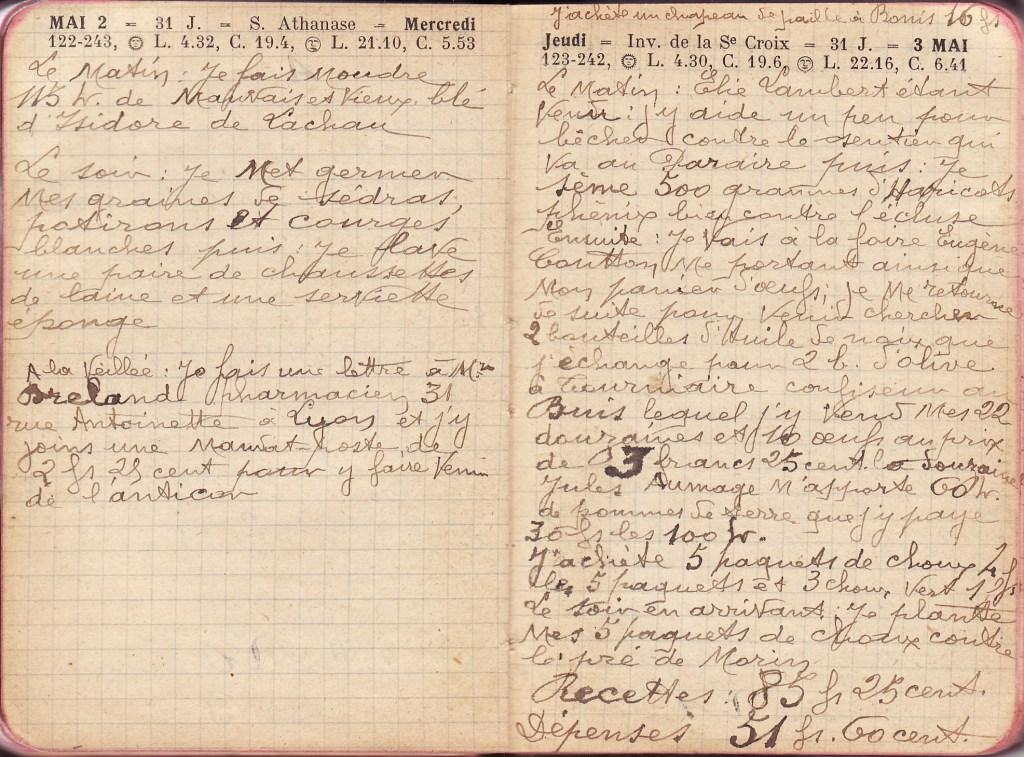 MAI 2 = 31 J. = S. Athanase = Mercredi
122-243, L. 4.32, C. 19.4, L. 21.10, C. 5.53
Le Matin : Je fais Moudre
115 k. de Mauvais et Vieux blé
d'Isidore de Lachau
Le soir : Je Met germer
Mes graines de sédras,
potirons et courges
blanches puis : Je lave
une paire de chaussettes
de laine et une serviette
éponge
A la Veillée : Je fais une lettre à Mr
Breland pharmacien 31
rue Antoinette à Lyon et j'y
joins une Mandat-poste de
2 fs 25 cent pour y faire Venir
de l'anticor
J'achète un chapeau de paille à Bonis 16 fs
Jeudi = Inv. de la Se Croix = 31 J. = 3 MAI
123-242, L. 4.30, C. 19.6, L. 22.16, C. 6.41
Le Matin : Élie Lambert étant
Venir : j'y aide un peu pour
bêcher contre le sentier qui
Va au Faraire puis : Je
sème 500 grammes d'Haricots
phénix bien contre l'écluse
Ensuite : Je Vais à la foire Eugène
Coutton Me portant ainsi que
Mon panier d'œufs, je Me retourne
de suite pour Venir chercher
2 bouteilles d'Huile de noix que
j'échange pour 2 b. d'olive
à Tourniaire confiseur au
Buis lequel j'y Vend Mes 22
douzaines et 10 œufs au prix
de 3 francs 25 cent. la douzaine
Jules Aumage M'apporte 60 k.
de pommes de terre que j'y paye
30 fs les 100 k.
J'achète 5 paquets de choux 2 fs
les 5 paquets et 3 choux Vert 1 fs
Le soir en arrivant : Je plante
Mes 5 paquets de choux contre
le pré de Morin
Recettes : 85 fs 25 cent.
Dépenses 51 fs. 60 cent.